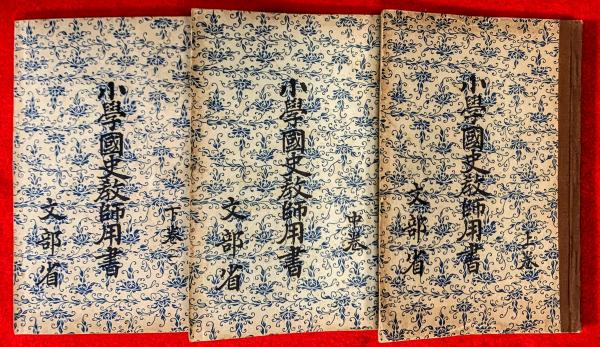 小學國史教師用書
上卷
文部省
小學國史教師用書
中卷
文部省
小學國史教師用書
下卷
文部省